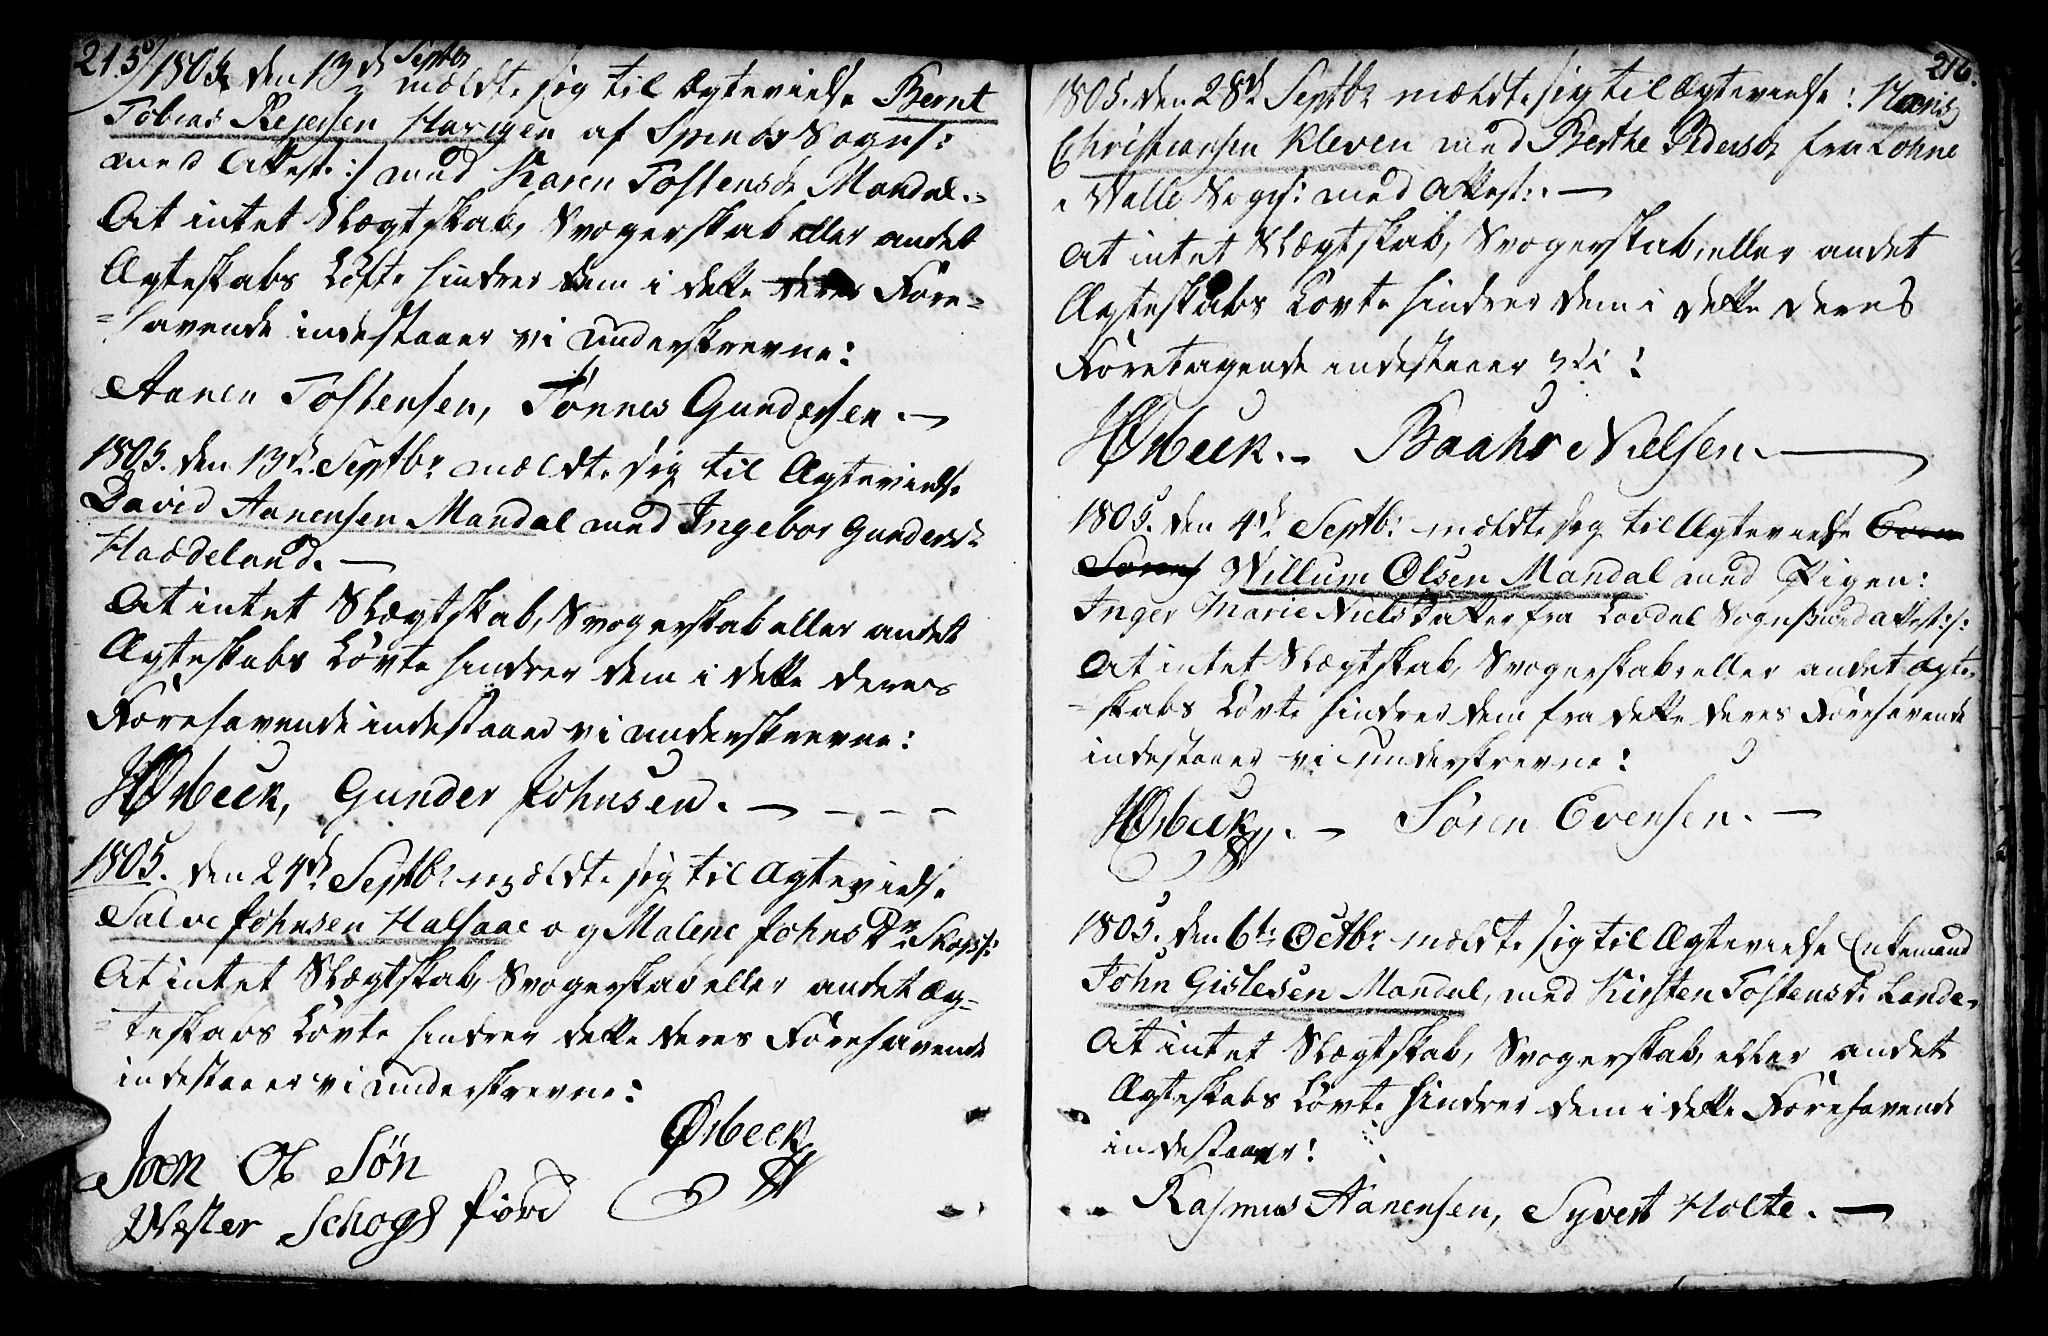 215
1805 den 13d Septbr mældte sig til Ægtevielse Bernt
Tobias Rejersen Harigen af Spinds Sogn /:
med Attest :/ med Karen Tostensdr Mandal.
At intet Slægtskab, Svogerskab eller andet
Ægteskabs Löfte hindrer dem i dette deres Före-
-havende indestaaer vi underskrevne:
Aanen Tostensen, Tönnes Gundersen. —
1805. den 13d Septbr mældte sig til Ægtevielse
David Aanensen Mandal med Ingebor Gundersdr
Haädeland. —
At intet Slægtskab, Svogerskab eller andet
Ægteskabs Lövte hindrer dem i dette deres
Förehavende indestaaer vi underskrevne:
HØrbeck, Gunder Johnsen. — – – –
1805. den 24d Septbr mældte sig til Ægtevielse
Salve Johnsen Halsaae og Malene Johns Dr
At intet Slægtskab, Svogerskab eller andet Æg-
-teskabs Lövte hindrer dette deres Förehavende
indestaaer vi underskrevne:
Joen Ol Sön Ørbeck
Wester Schogsfiord
216.
1805. den 28d Septbr mældte sig til Ægtevielse: Hans
Christiansen Kleven med Berthe Pedersdr fra Lohne
i Halle Sogn /: med Attest :. —
At intet Slægtskab, Svogerskab, eller andet
Ægteskabs Lovte hindrer dem i dette deres
Foretagende indestaaer vi:
HØrbeck. – Baahr Nielsen. —
1805. den 4d Septb: mældte sig til Ægtevielse Even
Sörens Willum Olsen Mandal med Pigen:
Inger Marie Niels Datter fra Sogn /: med Attest :/:
At intet Slægtskab, Svogerskab, eller andet Ægte-
-skabs Lövte hindrer dem fra dette deres Förehavende
indestaaer vi underskrevne:
HØrbeck. – Sören Evensen. —
1805. den 6te Octbr mældte sig til Ægtevielse Enkemand
John Gislesen Mandal, med Kirsten Tostensdr Lande.
At intet Slægtskab, Svogerskab, eller andet
Ægteskabs Lovte hindrer dem i dette Förehavende
indestaaer:
Rasmus Aanensen, Syvert Holte. —